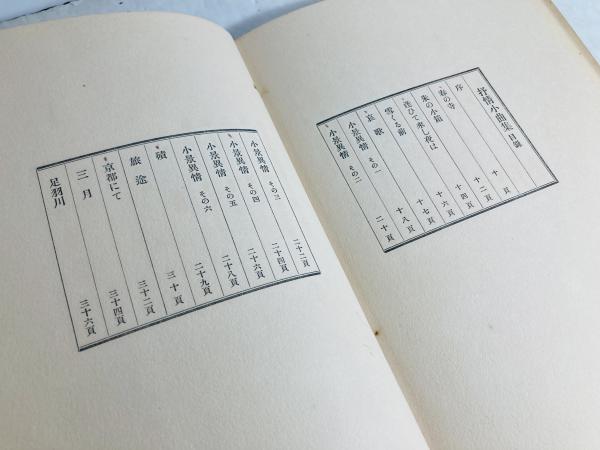 抒情小曲集 目録
序
春の寺 十頁
朱の小箱 十二頁
逢ひて来し夜は 十四頁
雪くる前 十六頁
哀歌 十七頁
小景異情 その一 十八頁
小景異情 その二 二十頁
小景異情 その三 二十二頁
小景異情 その四 二十四頁
小景異情 その五 二十六頁
小景異情 その六 二十八頁
磧 二十九頁
旅途 三十頁
京都にて 三十二頁
三月 三十四頁
足羽川 三十六頁